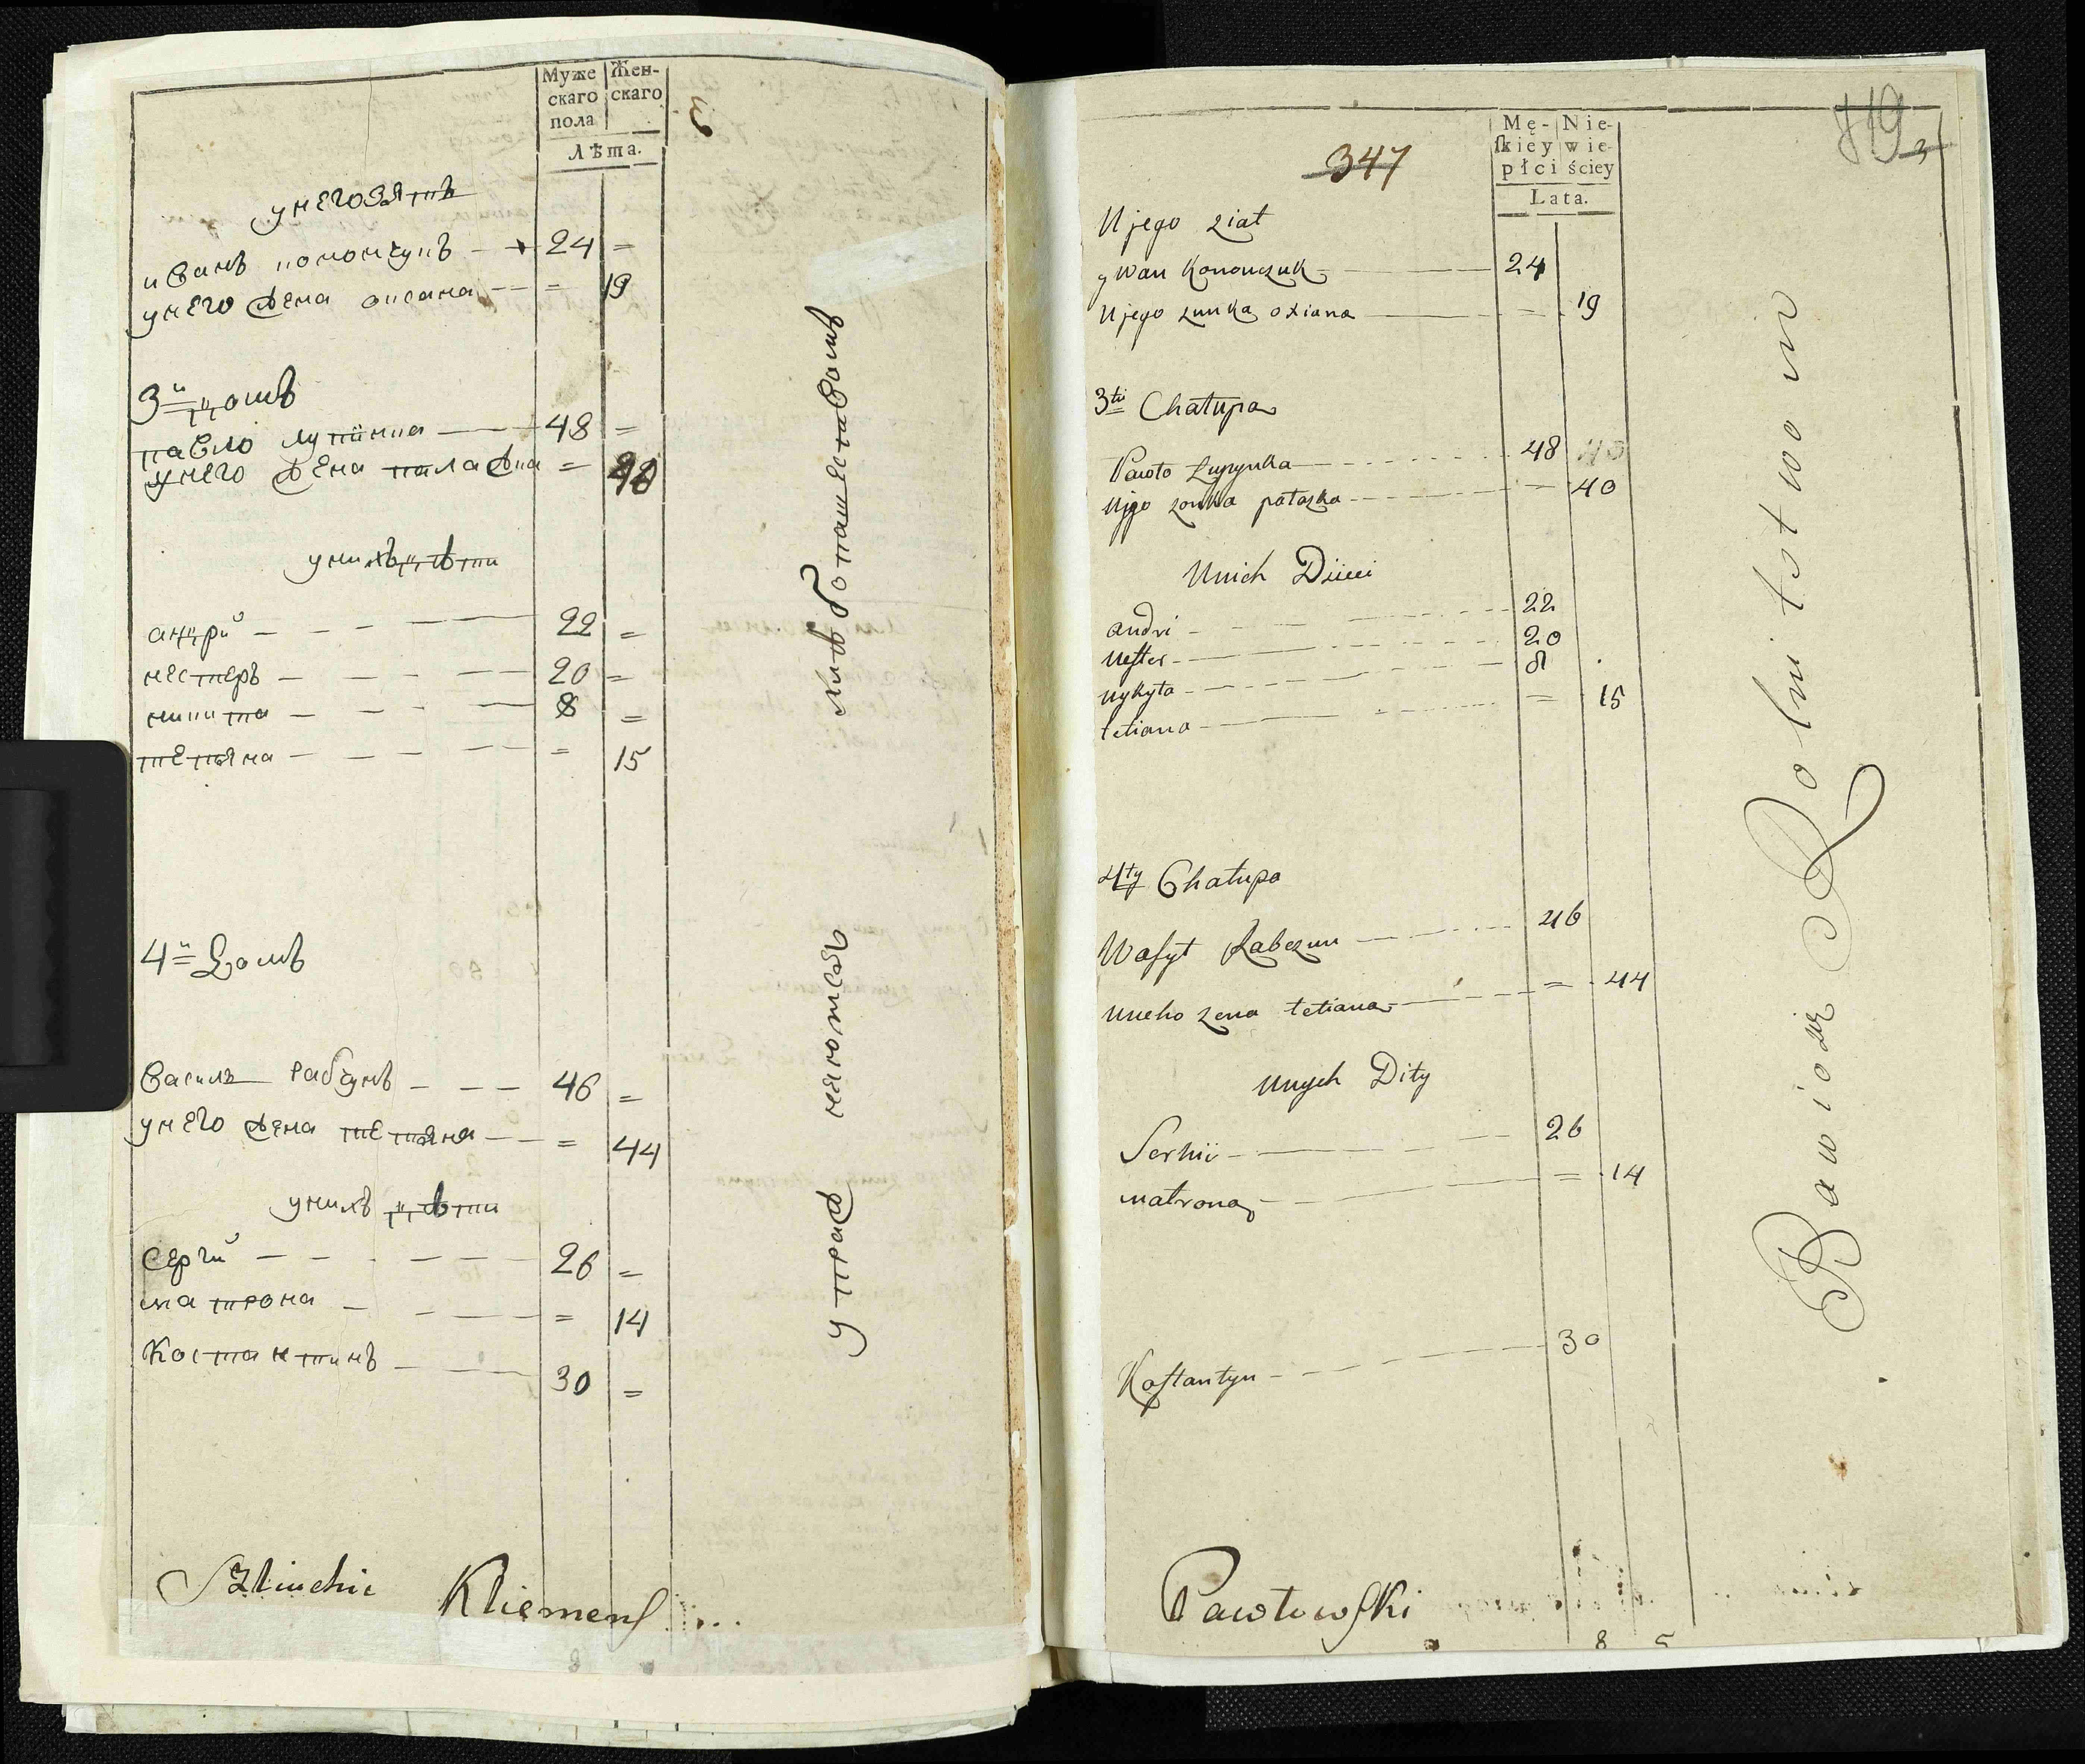 Муже
скаго
пола
Жен-
скаго
Лѣта.
3
у него зять
иванъ конончукъ 24 =
у него жена оксана = 19
3й домъ
павло лупинка 48 =
у него жена палажка = 40
у нихъ дѣти
андрй 22 =
нестеръ 20 =
микита 8 =
тетяна = 15
4й домъ
василь рабчунъ 46 =
у него жена тетяна = 44
у нихъ дѣти
сергй 26 =
матрона = 14
костантинъ 30 =
Klemens
347
119
3
Mę-
skiey
płci
Nie-
wie-
ściey
Lata.
U jego ziat
ywan Kononczuk 24
U jego zunka oxiana = 19
3ti Chałupa
Pawło Łupynka 48 40
U jgo zonka pałazka = 40
U nich Diieci
andri 22
Nester 20
Nykyta 8
tetiana = 15
4ty Chałupa
Wasyl Rabczun 46
U neho zena tetiana = 44
U nych Dity
Serhii 26
matrona = 14
Kostantyn 30
Bawiący Rolnitstwom
Pawłowski
8 5